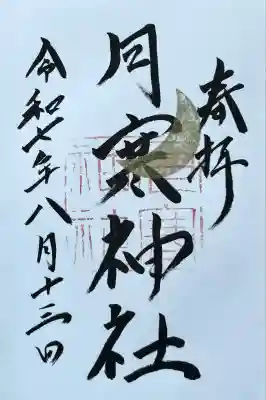 奉拝
月寒神社
令和七年八月十三日